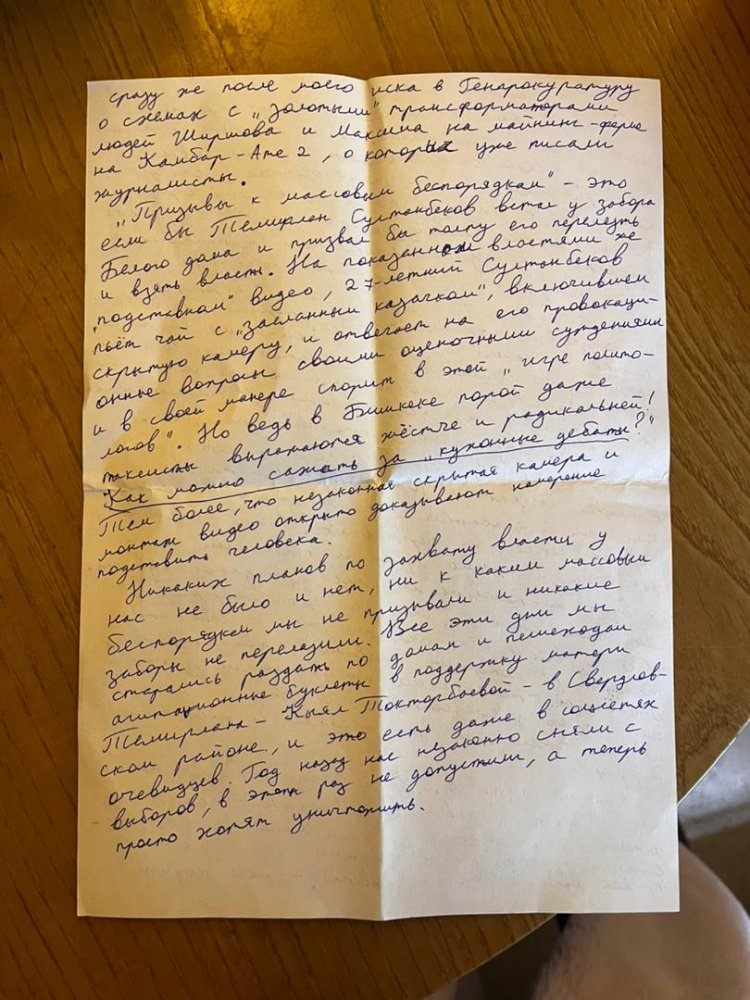 сразу же после моего иска в Генпрокуратуру
о схемах с „золотыми" трансформаторами
людей Ширшова и Максима на майнинг-ферме
на Камбар-Ате 2, о которых уже писали
журналисты.
„Призывы к массовым беспорядкам" – это
если бы Темирлан Султанбеков встал у забора
Белого дома и призвал бы толпу его перелезть
и взять власть. На показанном властями же
„подставном" видео, 27-летний Султанбеков
пьёт чай с „засланным казачком", включившем
скрытую камеру, и отвечает на его провокаци-
онные вопросы своими оценочными суждениями
и в своей манере спорит в этой „игре полито-
логов". Но ведь в Бишкеке порой даже
таксисты выражаются жёстче и радикальней!
Как можно сажать за „кухонные дебаты?"
Тем более, что незаконная скрытая камера и
монтаж видео открыто доказывают намерение
подставить человека.
Никаких планов по захвату власти у
нас не было и нет, ни к каким массовым
беспорядкам мы не призывали и никакие
заборы не перелазили. Все эти дни мы
старались раздать по домам и пешеходам
агитационные буклеты в поддержку матери
Темирлана – Кыял Токторбаевой – в Свердлов-
ском районе, и это есть даже в соцсетях
очевидцев. Год назад нас незаконно сняли с
выборов, в этот раз не допустили, а теперь
просто хотят уничтожить.